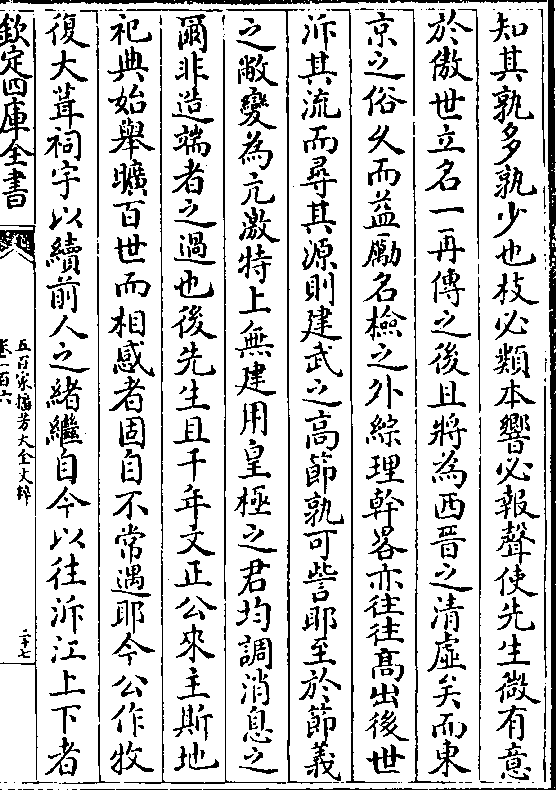 知其孰多孰少也枝必類本響必報聲使先生微有意
於傲世立名一再傳之後且將為西晉之清虛矣而東
京之俗久而益勵名檢之外綜理幹畧亦往往髙出後世
泝其流而尋其源則建武之高節孰可訾耶至於節義
之敝變為亢激特上無建用皇極之君均調消息之
爾非造端者之過也後先生且千年文正公來主斯地
祀典始舉曠百世而相感者固自不常遇耶今公作牧
復大葺祠宇以續前人之緒繼自今以往泝江上下者
欽定四庫全書
五百家播芳大全文粹
卷一百六
二十七